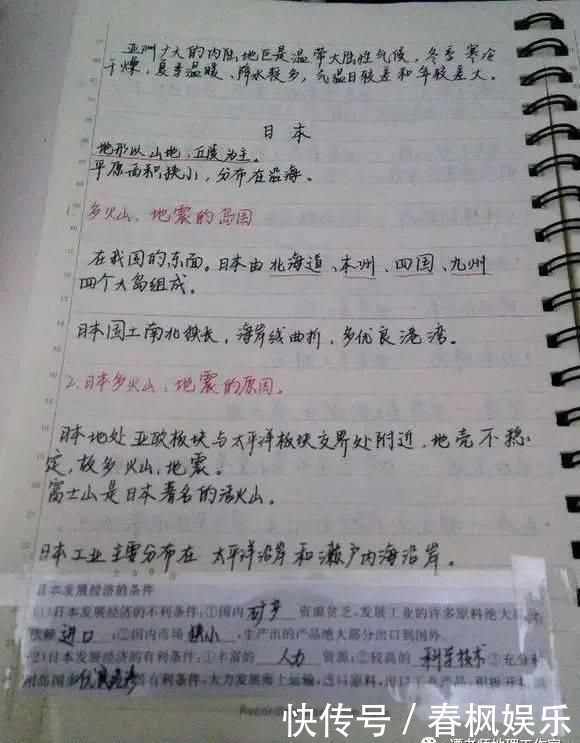 亚洲广大的内陆地区是温带大陆性气候，冬季寒冷
干燥，夏季温暖、降水较多，气温日较差和年较差大。
日本
地形以山地、丘陵为主。
平原面积狭小，分布在沿海。
1.多火山、地震的岛国
在我国的东面。日本由北海道、本州、四国、九州
四个大岛组成。
日本国土南北狭长，海岸线曲折，多优良港湾。
2.日本多火山、地震的原因。
日本地处亚欧板块与太平洋板块交界处附近，地壳不稳
定，故多火山、地震。
富士山是日本著名的活火山。
日本工业主要分布在太平洋沿岸和濑户内海沿岸。
日本发展经济的条件
(1)日本发展经济的不利条件:①国内矿产资源贫乏,发展工业的许多原料绝大部分
依赖进口;②国内市场狭小,生产出的产品绝大部分出口到国外。
(2)日本发展经济的有利条件:①丰富的人力资源;②较高的科学技术③充分利
用岛国多优良港湾的有利条件,大力发展海上运输,进口原料,出口工业产品,积极开拓
Record
快传号／春枫娱乐